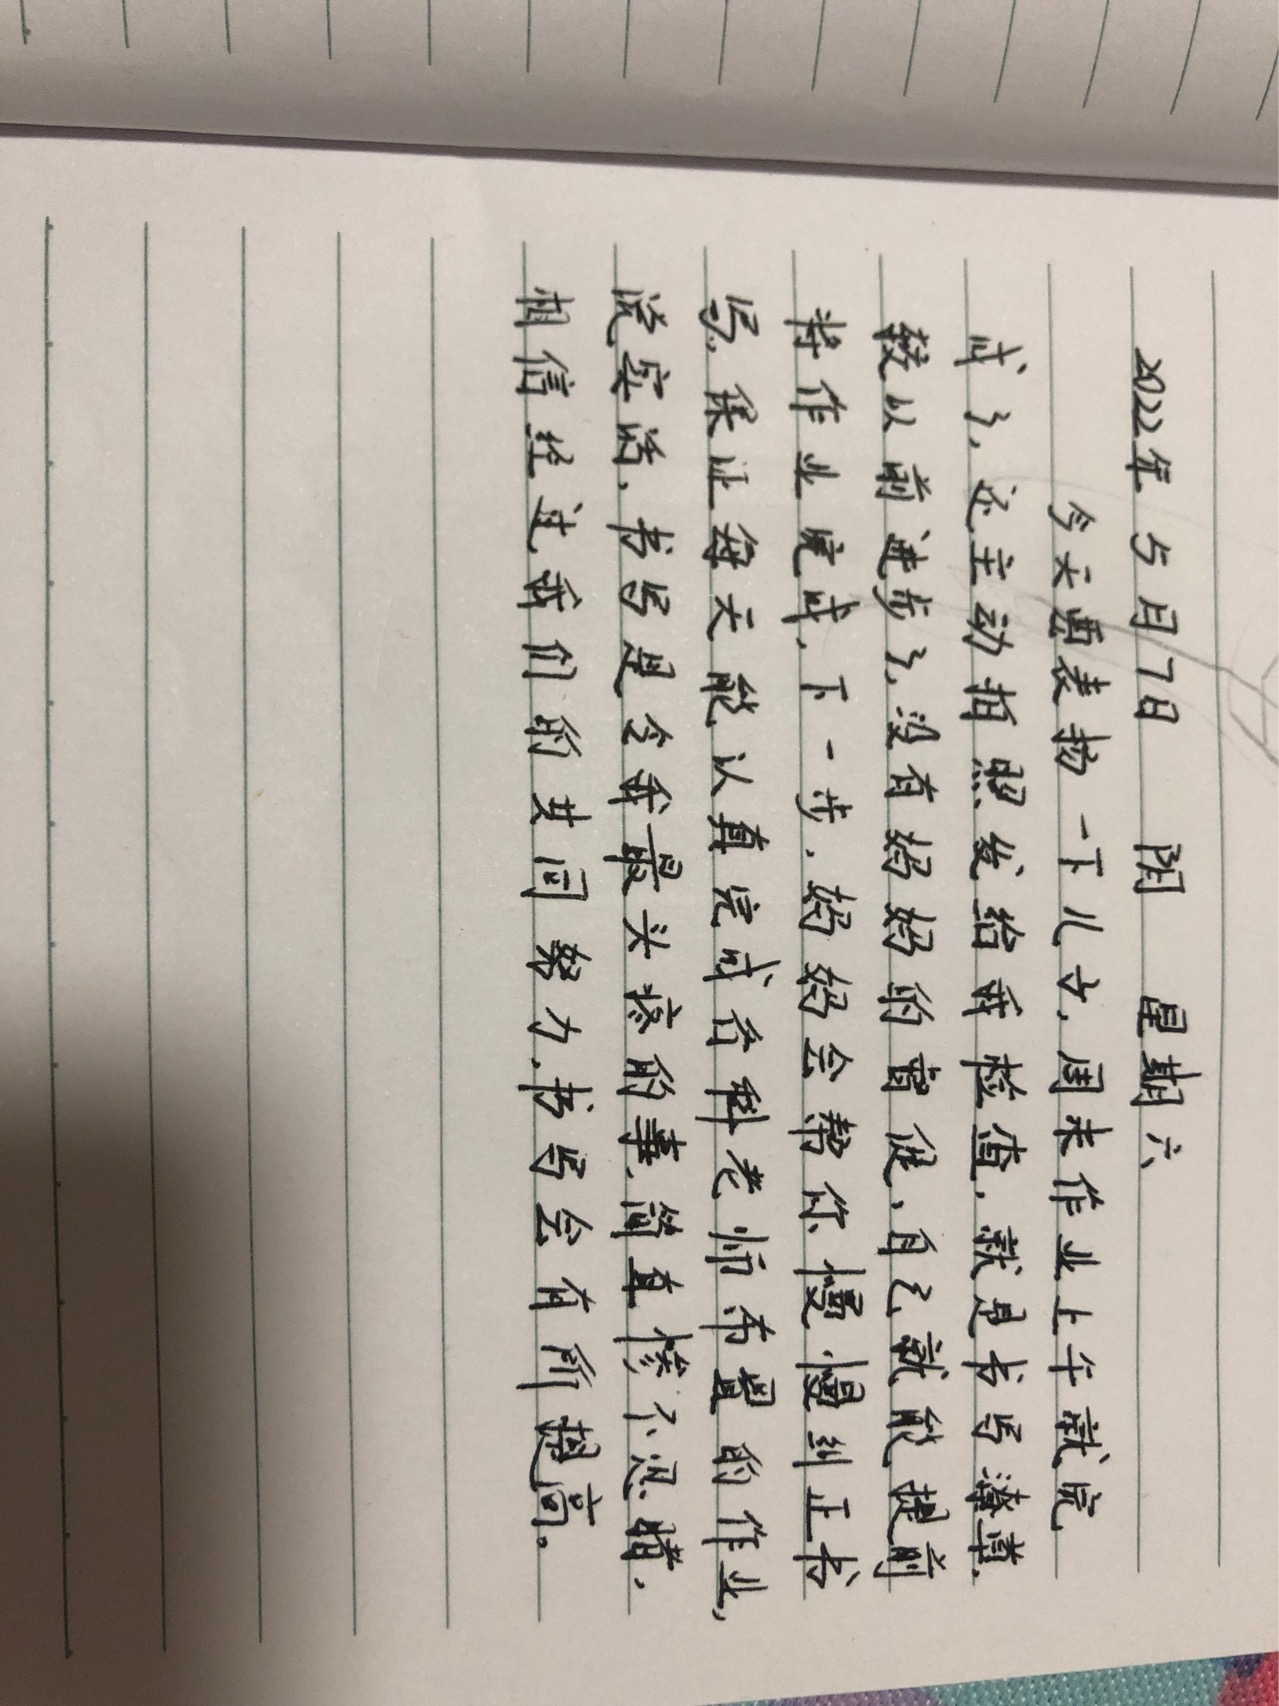 2022年5月7日 阴 星期六
今天要表扬一下儿子,周末作业上午就完
成了,还主动拍照发给我检查,就是书写潦草,
较以前进步了,没有妈妈的督促,自己就能提前
将作业完成,下一步,妈妈会帮你慢慢纠正书
写,保证每天能认真完成各科老师布置的作业,
说实话,书写是令我最头疼的事,简直惨不忍睹,
相信经过我们的共同努力,书写会有所提高。